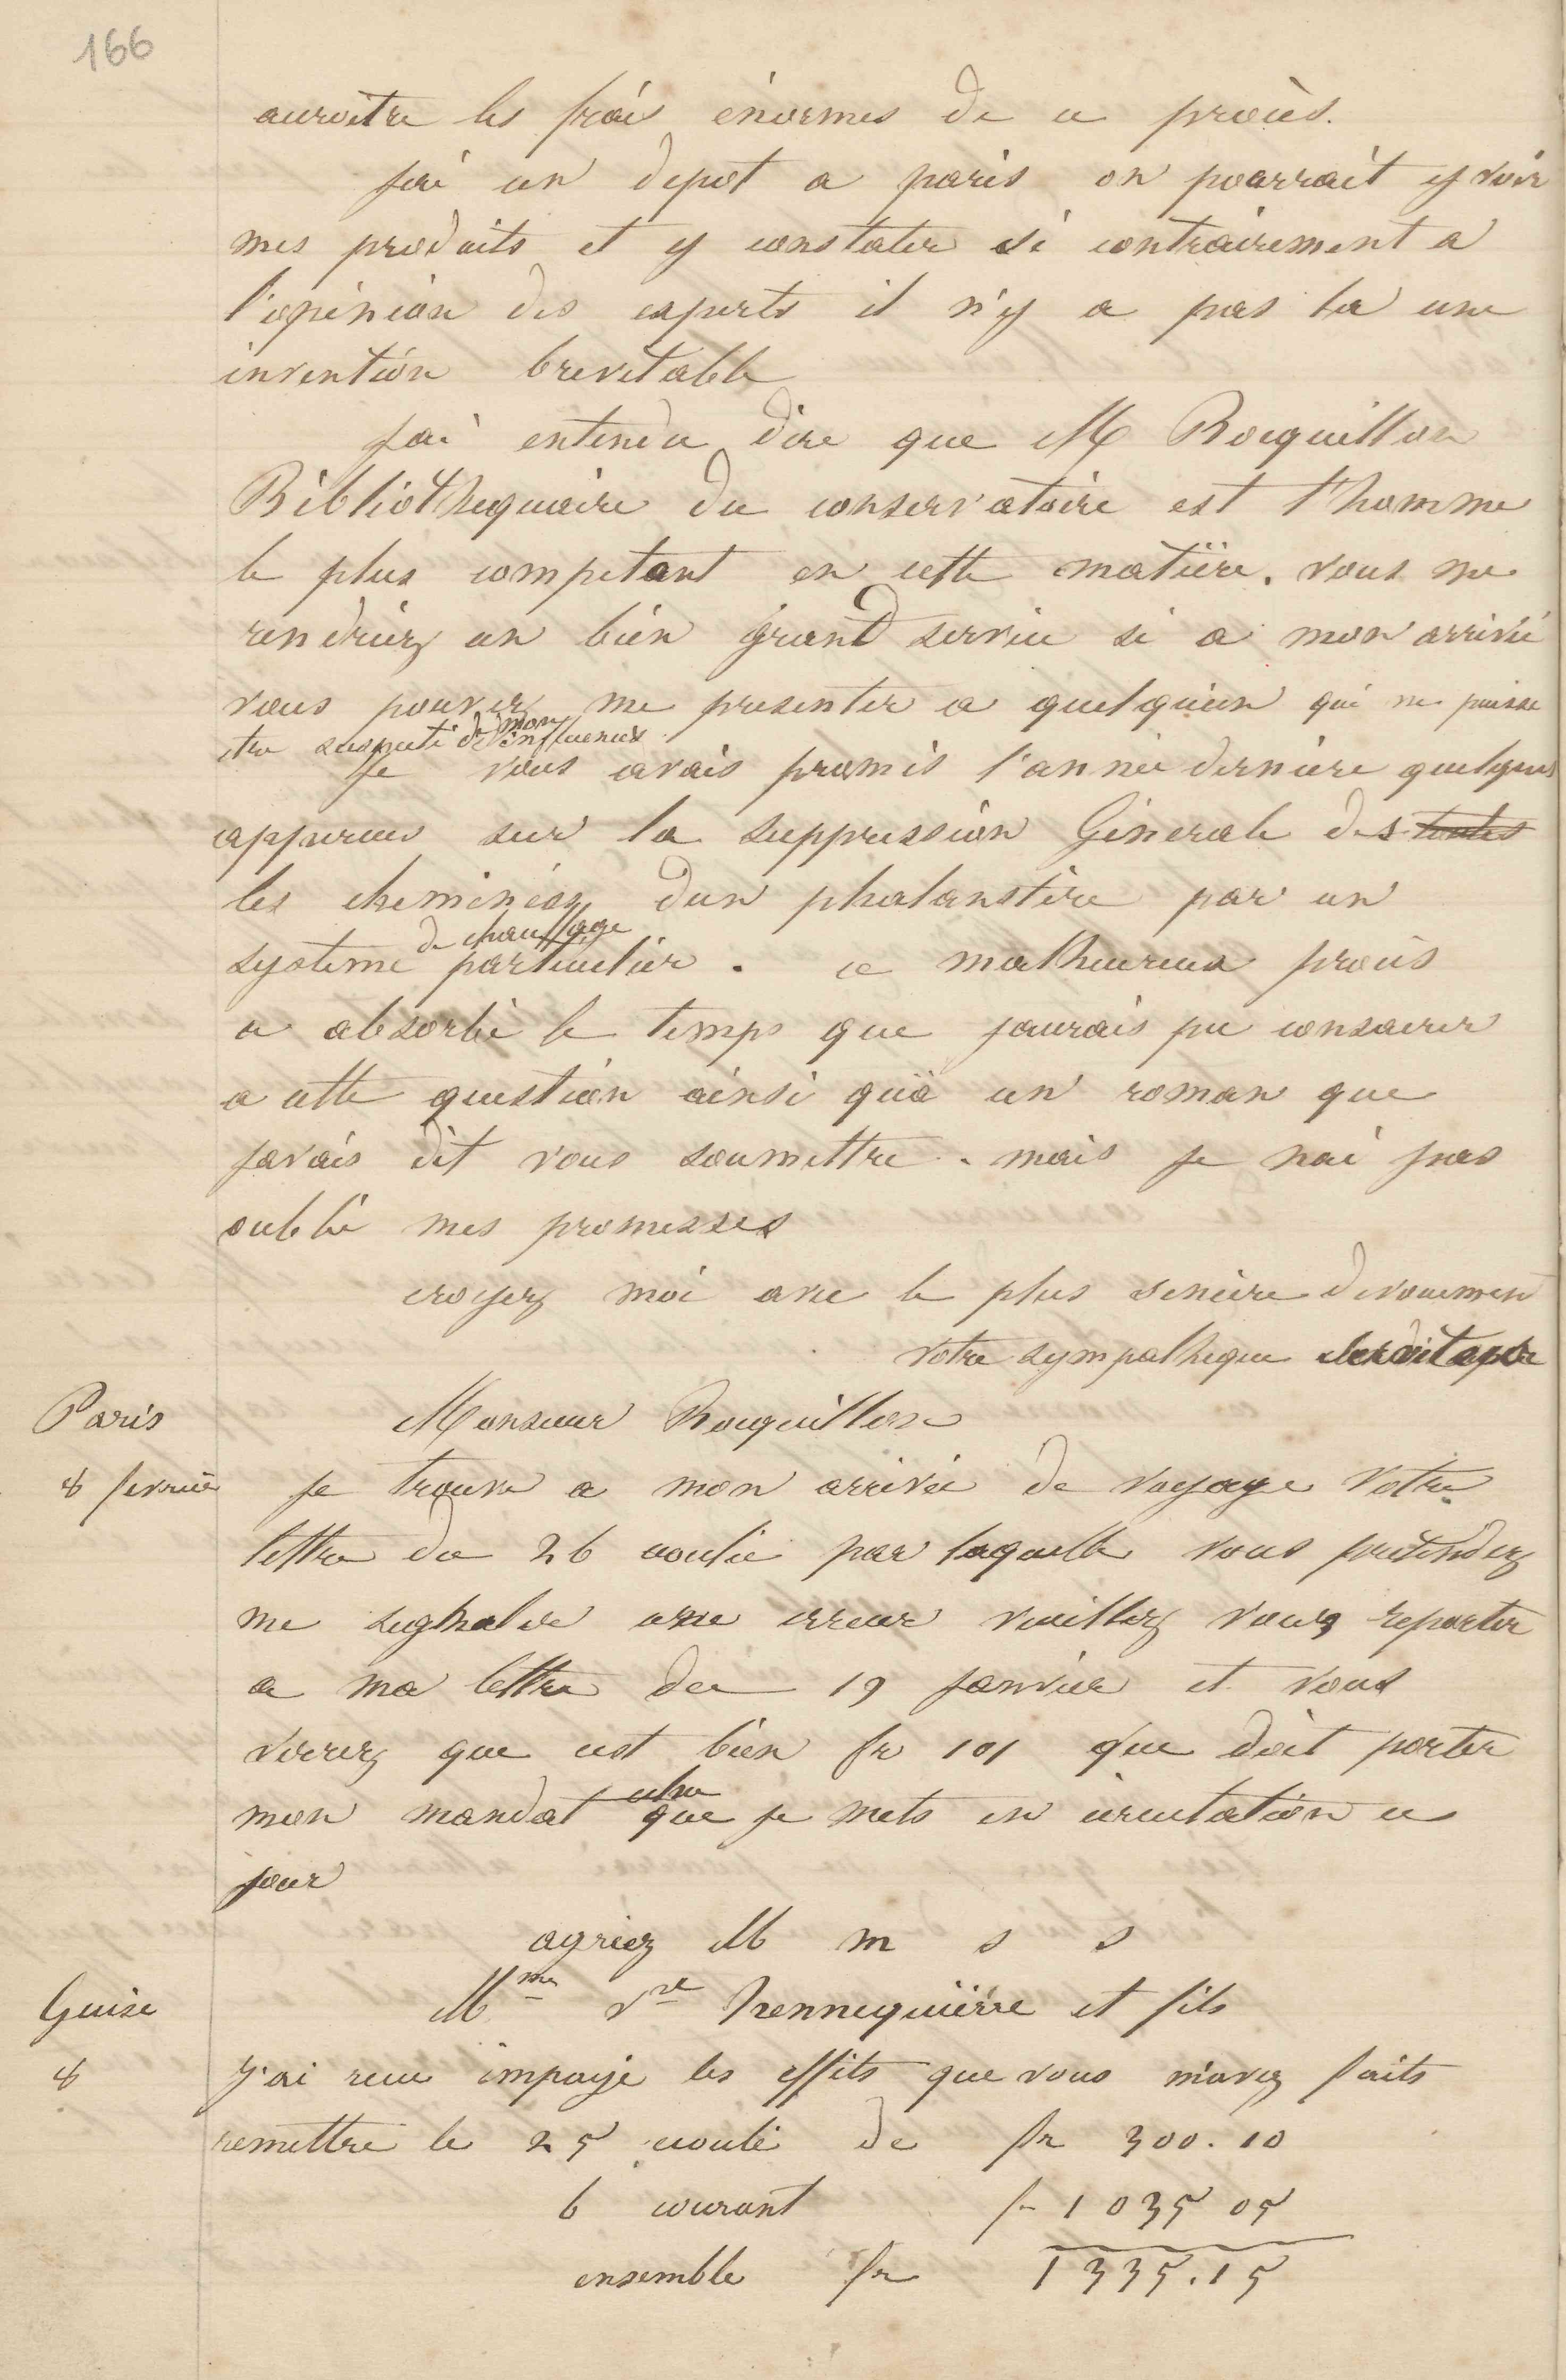 166
accroitre les frais énormes de ce procès.
j'ai un depot a paris on pourrait y voir
mes produits et y constater si contrairement a
l'opinion des experts il n'y a pas la une
invention brevetable
jai entendu dire que M Rocquillon
Bibliothequaire du conservatoire est l'homme
le plus competant en cette matière. vous me
rendriez un bien grand service si a mon arrivée
vous pouvez me presenter a quelqu'un qui ne puisse
etre suspecté de mon influence
Je vous avais promis l'année dernière quelques
appercus sur la suppression Génerale des toutes
les cheminées dun phalanstère par un
systeme de chauffage particulier. ce malheureux procès
a absorbé le temps que jaurais pu consacrer
a cette question ainsi qu'à un roman que
javais dit vous soumettre. mais je nai pas
oublié mes promesses
croyez moi avec le plus sincère devouement
votre sympathique
Paris
Monsieur Rocquillon
8 fevrier
je trouve a mon arrivée de voyage votre
lettre du 26 coulé par laquelle vous prétendez
me signaler une erreur veuillez vous reporter
a ma lettre du 19 janvier et vous
verrez que cest bien fr 101 que doit porter
mon mandat que je mets en circulation ce
jour
agréez M m s s
Guise
Mme Vve hennequière et fils
8
J'ai recu impayé les effets que vous m'avez faits
remettre le 25 coulé de fr 300.10
6 courant fr 1035 05
ensemble fr 1335.15